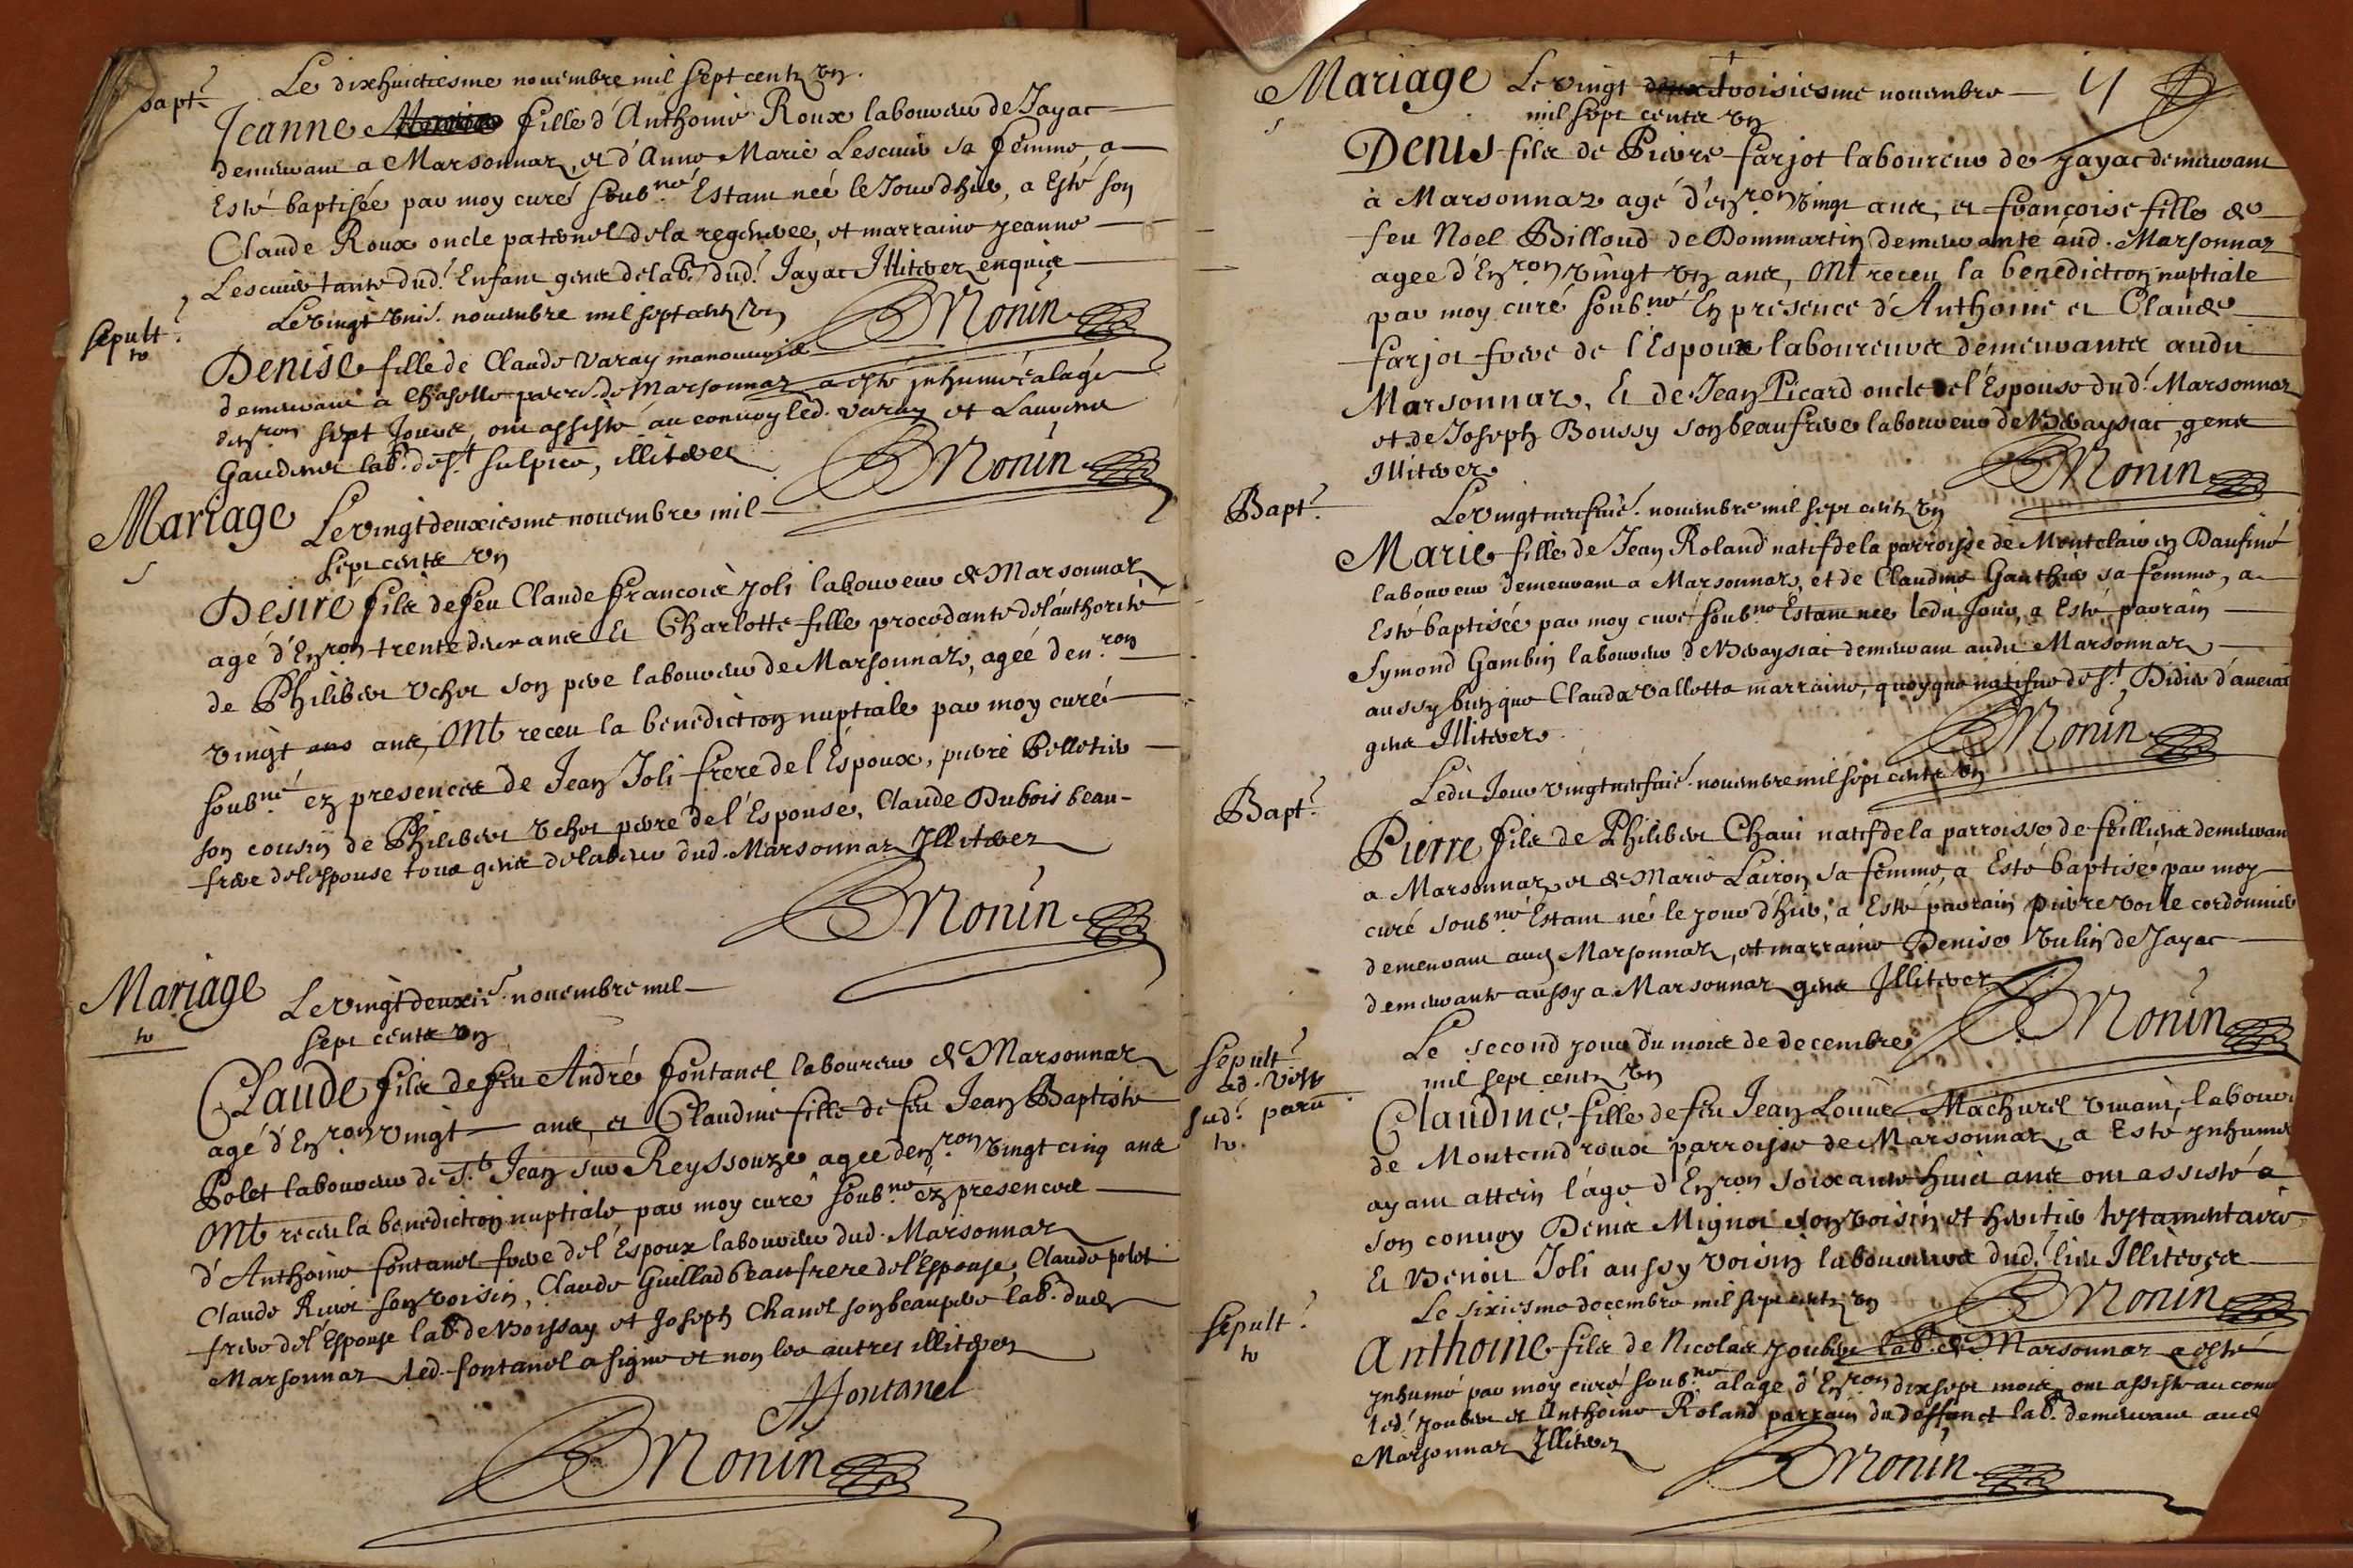 Bapt.
Le dixhuictiesme novembre mil sept cents un.
Jeanne fille d'Anthoine Roux laboureur de Jayac
demeurant a Marsonnaz, et d'Anne Marie Lescuier sa femme, a
Esté baptisée par moy curé soubné Estant née le Jour d'hier, a Esté son
Claude Roux oncle paternel de la regeneree, et marraine Jeanne
Lescuier tante dud. Enfant gens de lab. dud. Jayac Illiterez enquis
BMonin
sepult.
Le vingt unie. novembre mil sept cents un
Denise fille de Claude Varay manouvrier
demeurant a Chaselle parr. de Marsonnaz a esté inhumée a lage
d'environ sept Jours, ont assisté au convoy led. Varay et Laurent
Gaudenet lab. de St. Sulpice, illiterez
BMonin
Mariage
Le vingt deuxiesme novembre mil
sept cents un
Desiré fils de feu Claude François Joli laboureur de Marsonnaz
agé d'Enron trente deux ans Et Charlotte fille procedante de l'authorité
de Philibert Vchet son pere laboureur de Marsonnaz, agée d'en.ron
vingt ans, Ont receu la benediction nuptiale par moy curé
soubné en presences de Jean Joli frere de l'Espoux, pierre Pelletier
son cousin de Philibert Vchet pere de l'Espouse, Claude Dubois beau-
frere de lespouse tous gens de labeur dud. Marsonnaz Illiterez
BMonin
Mariage
Le vingt deuxie. novembre mil
sept cents un
Claude fils de feu André Fontanel laboureur de Marsonnaz
agé d'Enron vingt ans, et Claudine fille de feu Jean Baptiste
Polet laboureur de St. Jean sur Reyssouze agee d'enron vingt cinq ans
Ont receu la benediction nuptiale par moy curé soubné en presences
d'Anthoine Fontanel frere de l'Espoux laboureur dud. Marsonnaz
Claude son voisin, Claude Guillad beau frere de l'Espouse, Claude polet
frere de l'Espouse lab. de Boissay et Joseph Chanel son beaupere lab. dud.
Marsonnaz led. Fontanel a signé et non les autres illiterez
AFontanel
BMonin
Mariage
Le vingt troisiesme novembre
mil sept cents un
Denis fils de Pierre Farjot laboureur de Jayac demeurant
à Marsonnaz agé d'enron vingt ans, et Françoise fille de
feu Noel Billoud de Dommartin demeurante aud. Marsonnaz
agee d'Enron vingt un ans, Ont receu la benediction nuptiale
par moy curé soubné En presence d'Anthoine et Claude
Farjot frere de l'Espoux laboureurs demeurants audit
Marsonnaz, Et de Jean Picard oncle de l'Espouse dud. Marsonnaz
et de Joseph Boussy son beaufrere laboureur de gens
Illiterez
BMonin
Bapt.
Le vingt neufvie. novembre mil sept cents un
Marie fille de Jean Roland natif de la parroisse de Montclair en Daufiné
laboureur demeurant a Marsonnaz, et de Claudine Gauthier sa femme, a
Esté baptisée par moy curé soubné Estant née ledit Jour, a Esté parrain
Symond Gambin laboureur de demeurant audit Marsonnaz
aussy bien que Clauda Vallotte marraine, quoyque natifue de St. Didier d'
gens Illiterez
BMonin
Bapt.
Ledit Jour vingt neufvie. novembre mil sept cents un
Pierre fils de Philibert Chavi natif de la parroisse de feilliens demeurant
a Marsonnaz, et de Marie Lairon sa femme, a Esté baptisé par moy
curé soubné Estant né le jour d'hier, a Esté parrain pierre cordonnier
demeurant aud. Marsonnaz, et marraine Denise Vulin de Jayac
demeurante aussy a Marsonnaz gens Illiterez
BMonin
sepult.
Le second jour du mois de decembre
mil sept cents un
Claudine, fille de feu Jean Louis Machurel vivant, labour
de Montcindroux parroisse de Marsonnaz, a Esté inhumé
ayant attein l'age d'Enron soixante huict ans ont assisté a
son convoy Denis Mignot son voisin et heritier testamentaire
Et Benoit Joli aussy voisin laboureurs dud. lieu Illiterez
BMonin
sepult.
Le sixiesme decembre mil sept cents un
Anthoine fils de Nicolas Joubert lab. de Marsonnaz a esté
inhumé par moy curé soubné a lage d'Enron dix sept mois, ont assisté au conv
led. Joubert et Anthoine Roland parrain du deffunct lab. demeurant aud
Marsonnaz Illiterez
BMonin